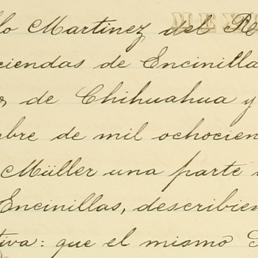 llo Martinez del R
ciendas de Encinilla
s de Chihuahua y
bre de mil ochocien
Müller una parte
Encinillas, describien
tiva: que el mismo